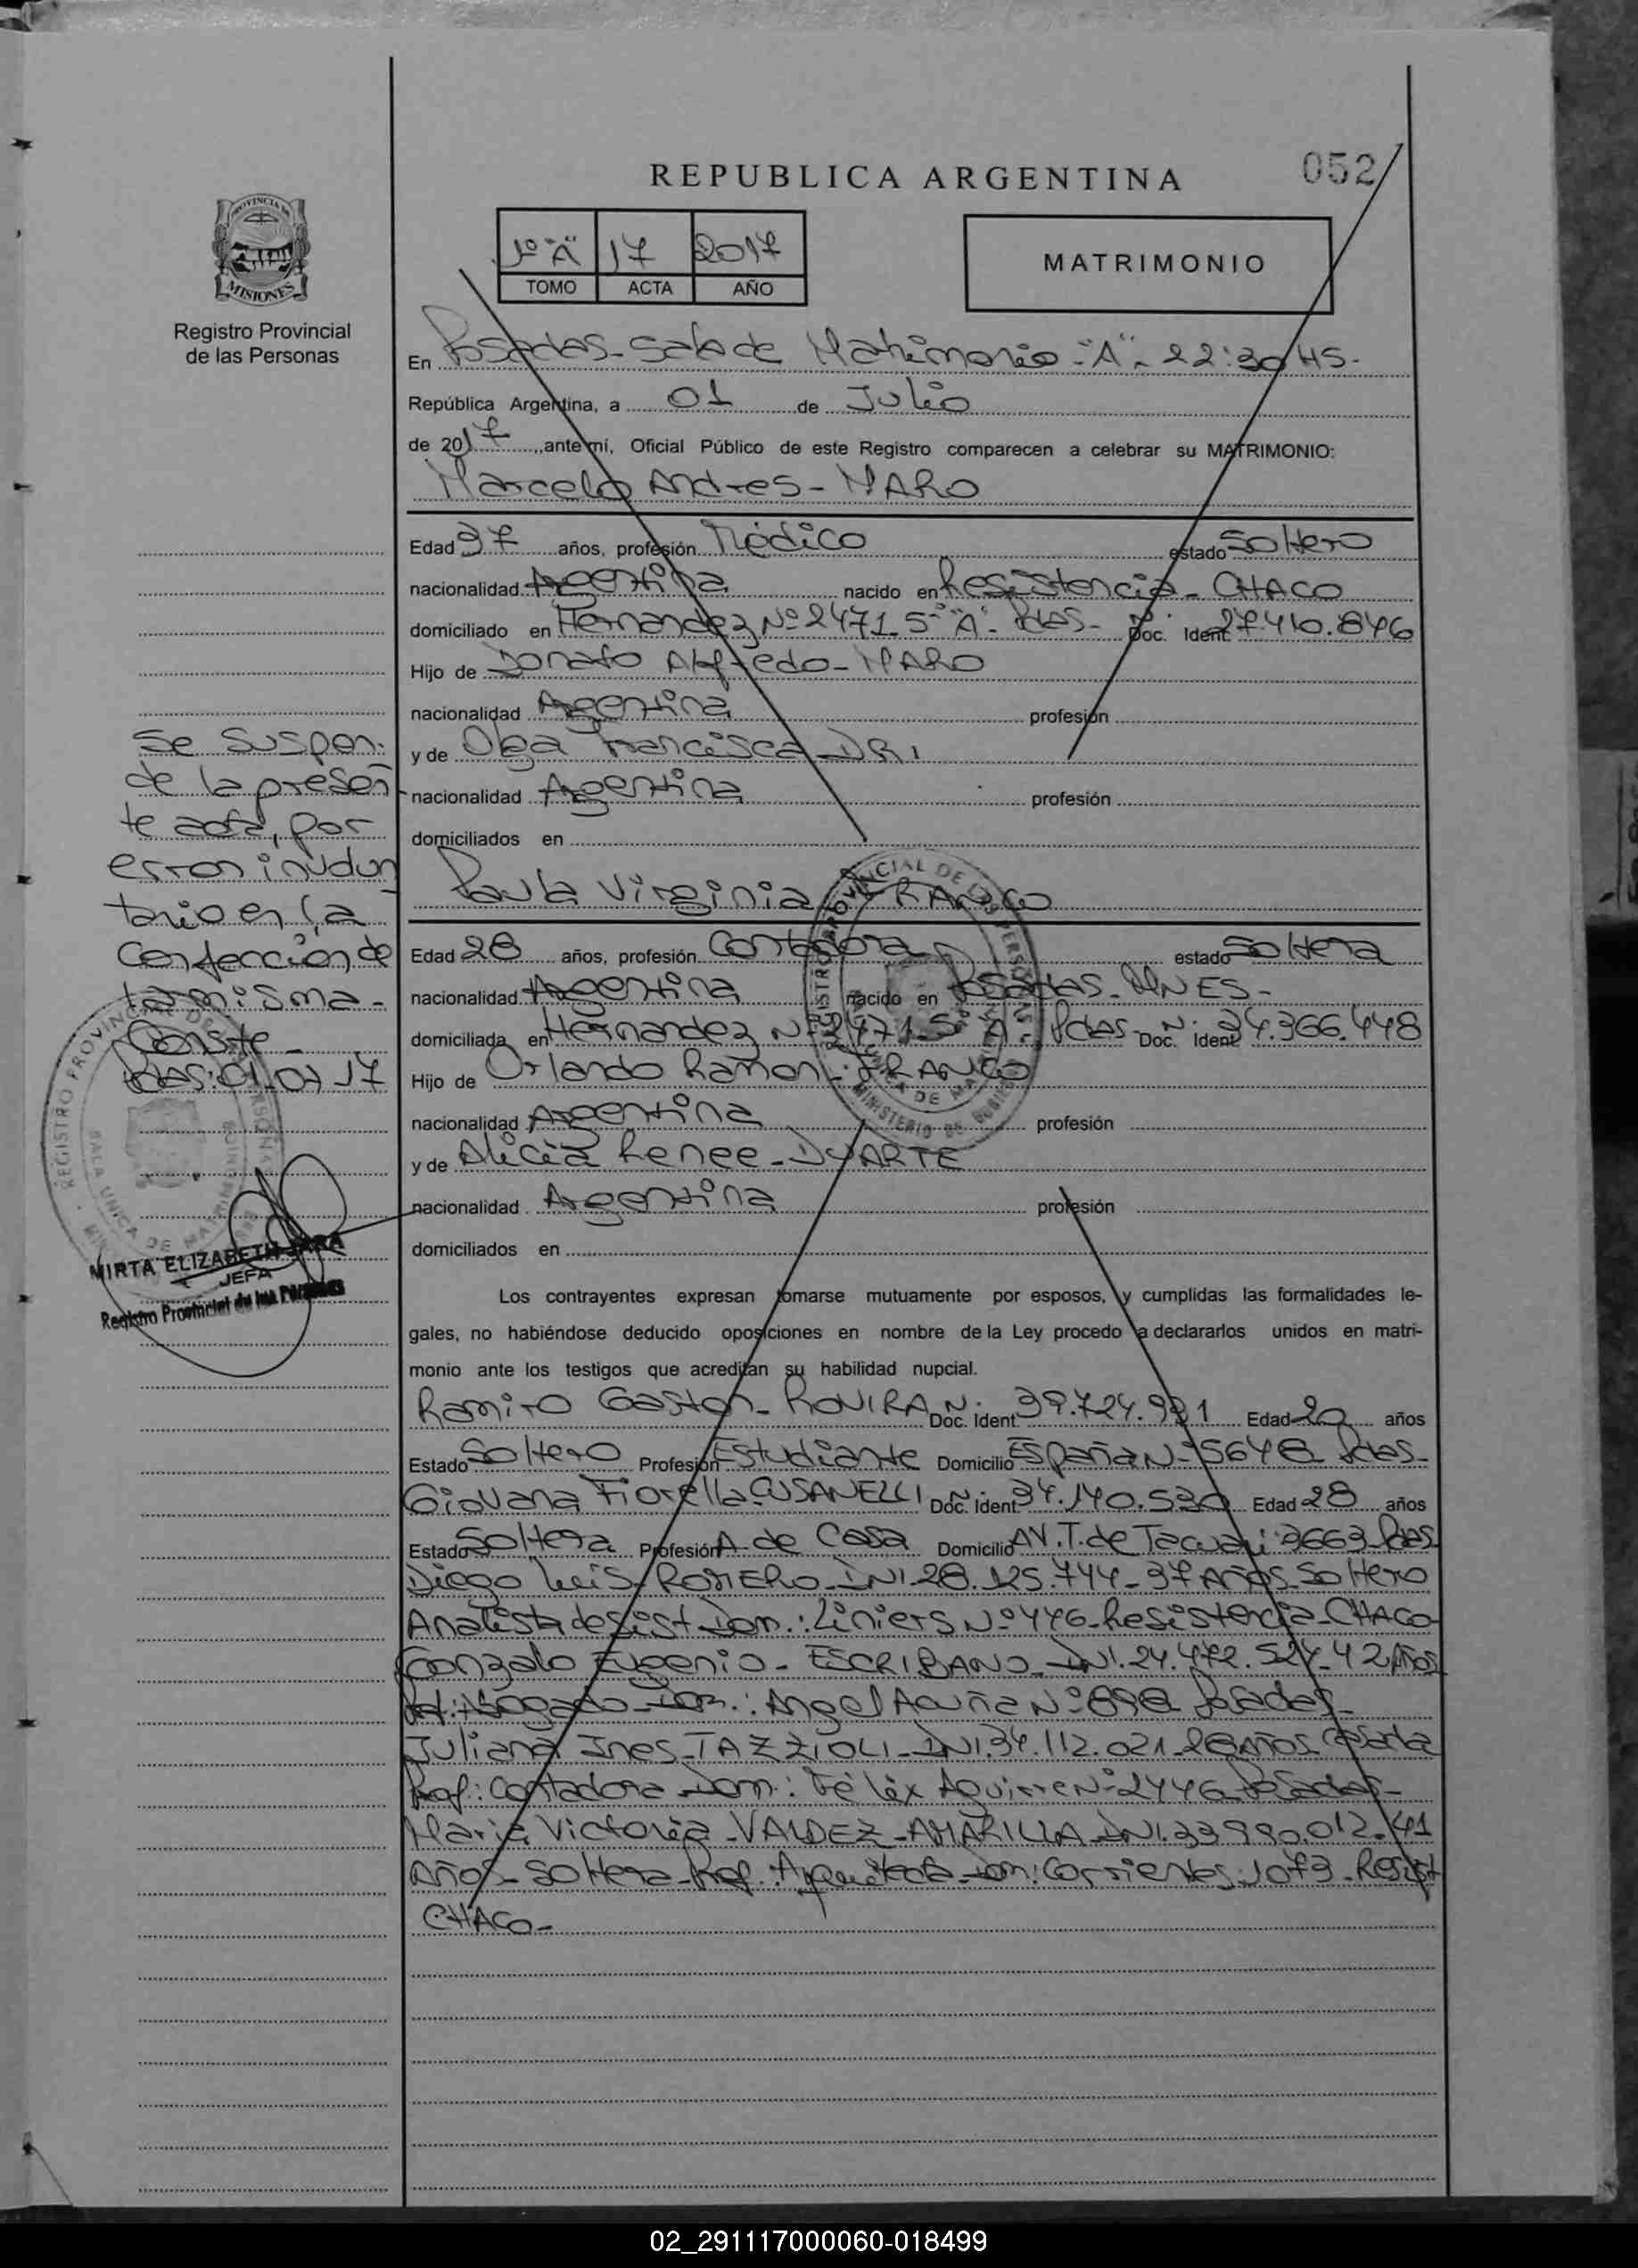 REPUBLICA ARGENTINA
052
PROVINCIA DE
MISIONES
Registro Provincial
de las Personas
1º "A" 17 2017
TOMO ACTA AÑO
MATRIMONIO
En Posadas - Sala de Matrimonio - "A" - 22:30 HS -
República Argentina, a 01 de Julio
de 2017, ante mí, Oficial Público de este Registro comparecen a celebrar su MATRIMONIO:
Marcelo Andres - MARO
Edad 37 años, profesión Médico estado Soltero
nacionalidad Argentina nacido en Resistencia - CHACO
domiciliado en Hernandez Nº 2471. 5º "A" - Pdas - Doc. Ident. 27.410.846
Hijo de Donato Alfredo - MARO
nacionalidad Argentina profesión
y de Olga Francisca - DRI
nacionalidad Argentina profesión
domiciliados en
Paula Virginia FRANCO
Edad 28 años, profesión Contadora estado Soltera
nacionalidad Argentina nacido en Posadas - MNES -
domiciliada en Hernandez Nº 2471. 5º "A" - Pdas - Doc. Ident. Nº 34.366.448
Hijo de Orlando Ramon - FRANCO
nacionalidad Argentina profesión
y de Alicia Renee - DUARTE
nacionalidad Argentina profesión
domiciliados en
Los contrayentes expresan tomarse mutuamente por esposos, y cumplidas las formalidades le-
gales, no habiéndose deducido oposiciones en nombre de la Ley procedo a declararlos unidos en matri-
monio ante los testigos que acreditan su habilidad nupcial.
Ramiro Gaston - ROVIRA Doc. Ident Nº 39.724.991 Edad 20 años
Estado Soltero Profesión Estudiante Domicilio España Nº 5648 Pdas -
Giovana Fiorella CUSANELLI Doc. Ident Nº 34.140.530 Edad 28 años
Estado Soltera Profesión A. de Casa Domicilio AV. T. de Tacuari 3663 Pdas
Diego Luis - ROMERO - DNI. 28.125.744 - 37 Años - Soltero
Analista de Sist - Dom.: Liniers Nº 446 - Resistencia - CHACO -
Gonzalo Eugenio - ESCRIBANO - DNI. 24.472.524 - 42 Años
Prof: Abogado - Dom.: Angel Acuña Nº 898 Posadas -
Juliana Ines - TAZZIOLI - DNI. 34.112.021 - 28 Años - Casada
Prof: Contadora - Dom.: Félix Aguirre Nº 2446 - Posadas -
Maria Victoria - VALDEZ - AMARILLA - DNI. 33.990.012. 41
Años - Soltera - Prof.: Arquitecta - Dom: Corrientes 1073 - Resist
CHACO -
Se suspen-
de la presen
te acta, por
error involun
tario en la
Confección de
la misma -
Conste -
Pdas: 01.07.17
REGISTRO PROVINCIAL DE LAS PERSONAS
MIRTA ELIZABETH JARA
JEFA
Registro Provincial de las Personas
02_291117000060-018499